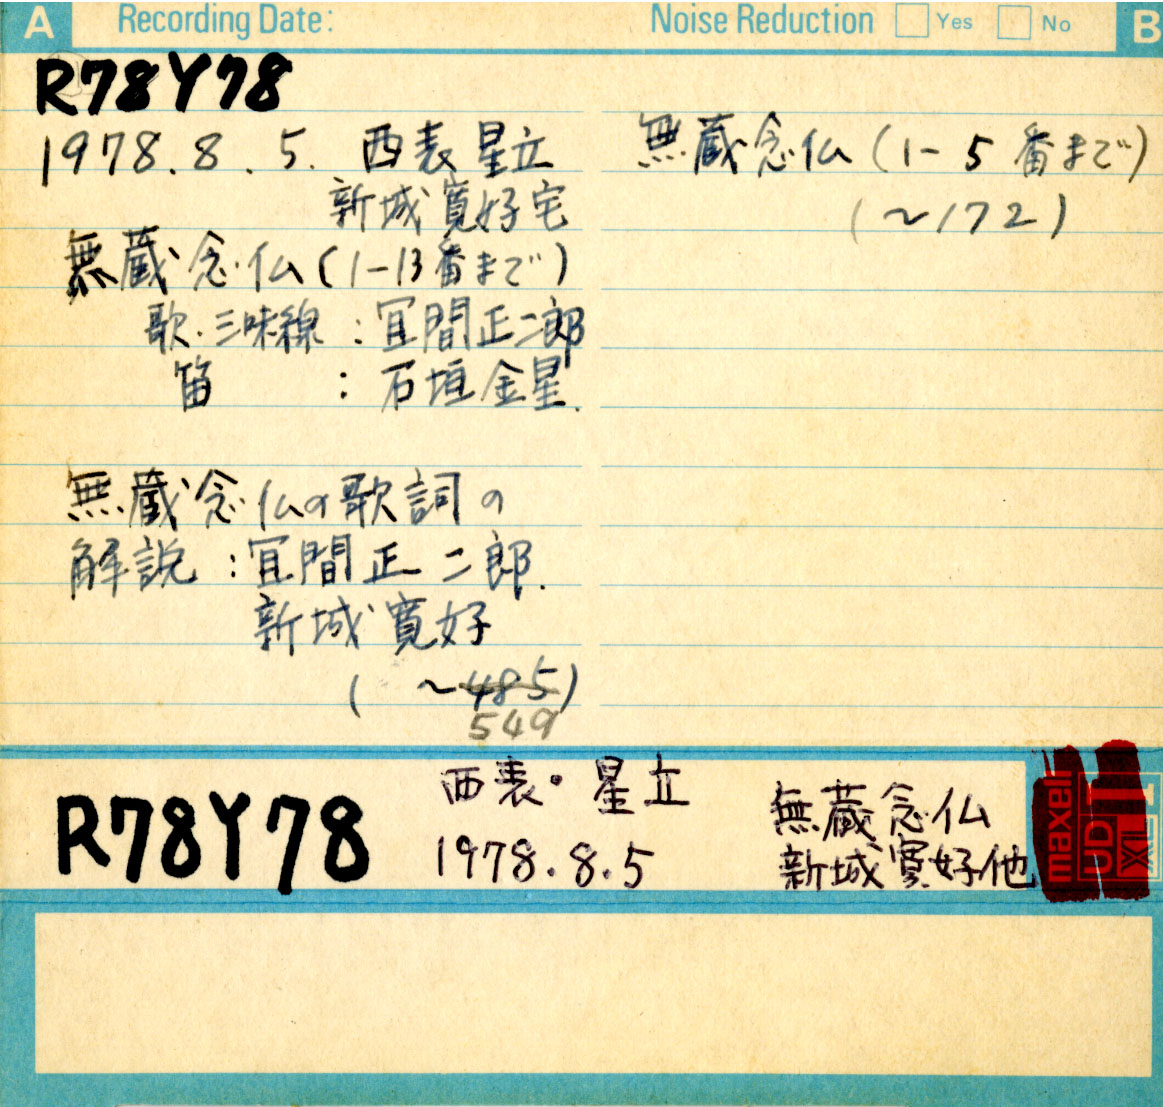 A Recording Date:
R78Y78
1978.8.5. 西表 星立
新城寛好宅
無蔵念仏(1-13番まで)
歌・三味線:宜間正二郎
笛 : 石垣金星.
無蔵念仏の歌詞の
解説:宜間正二郎.
新城寛好
(~485)
549
Noise Reduction Yes No B
無蔵念仏(1-5番まで)
(~172)
R78Y78
西表・星立
1978.8.5
無蔵念仏
新城寛好他
maxell
UD
XL
I